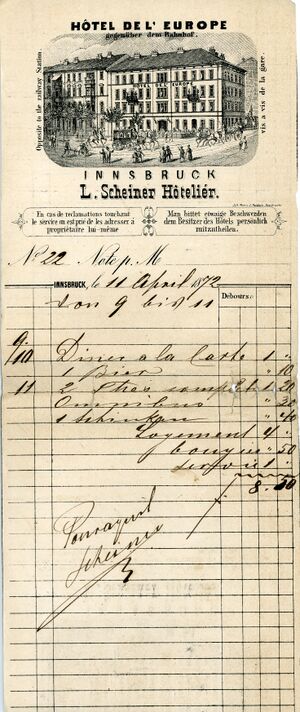 HÔTEL DE L' EUROPE
gegenüber dem Bahnhof.
Opposite to the railway Station.
HOTEL DE L'EUROPE
vis a vis de la gare.
INNSBRUCK
L. Scheiner Hôteliér.
En cas de reclamations touchant
le service on est prié de les adresser à
propriétaire lui-même
Man bittet etwaige Beschwerden
dem Besitzer des Hôtels persönlich
mitzutheilen.
No. 22 Note p. M
INNSBRUCK, le 11 April 1872
Von 9 bis 11 Debours:
9/10 Diner a la Carte 1 "
1 Bier " 10
11 2 Thes complet 1 20
Omnibus " 30
1 Schinken " 40
Logement 4 "
bougie " 50
Service 1 "
8. 50
Pour aquit
Scheiner